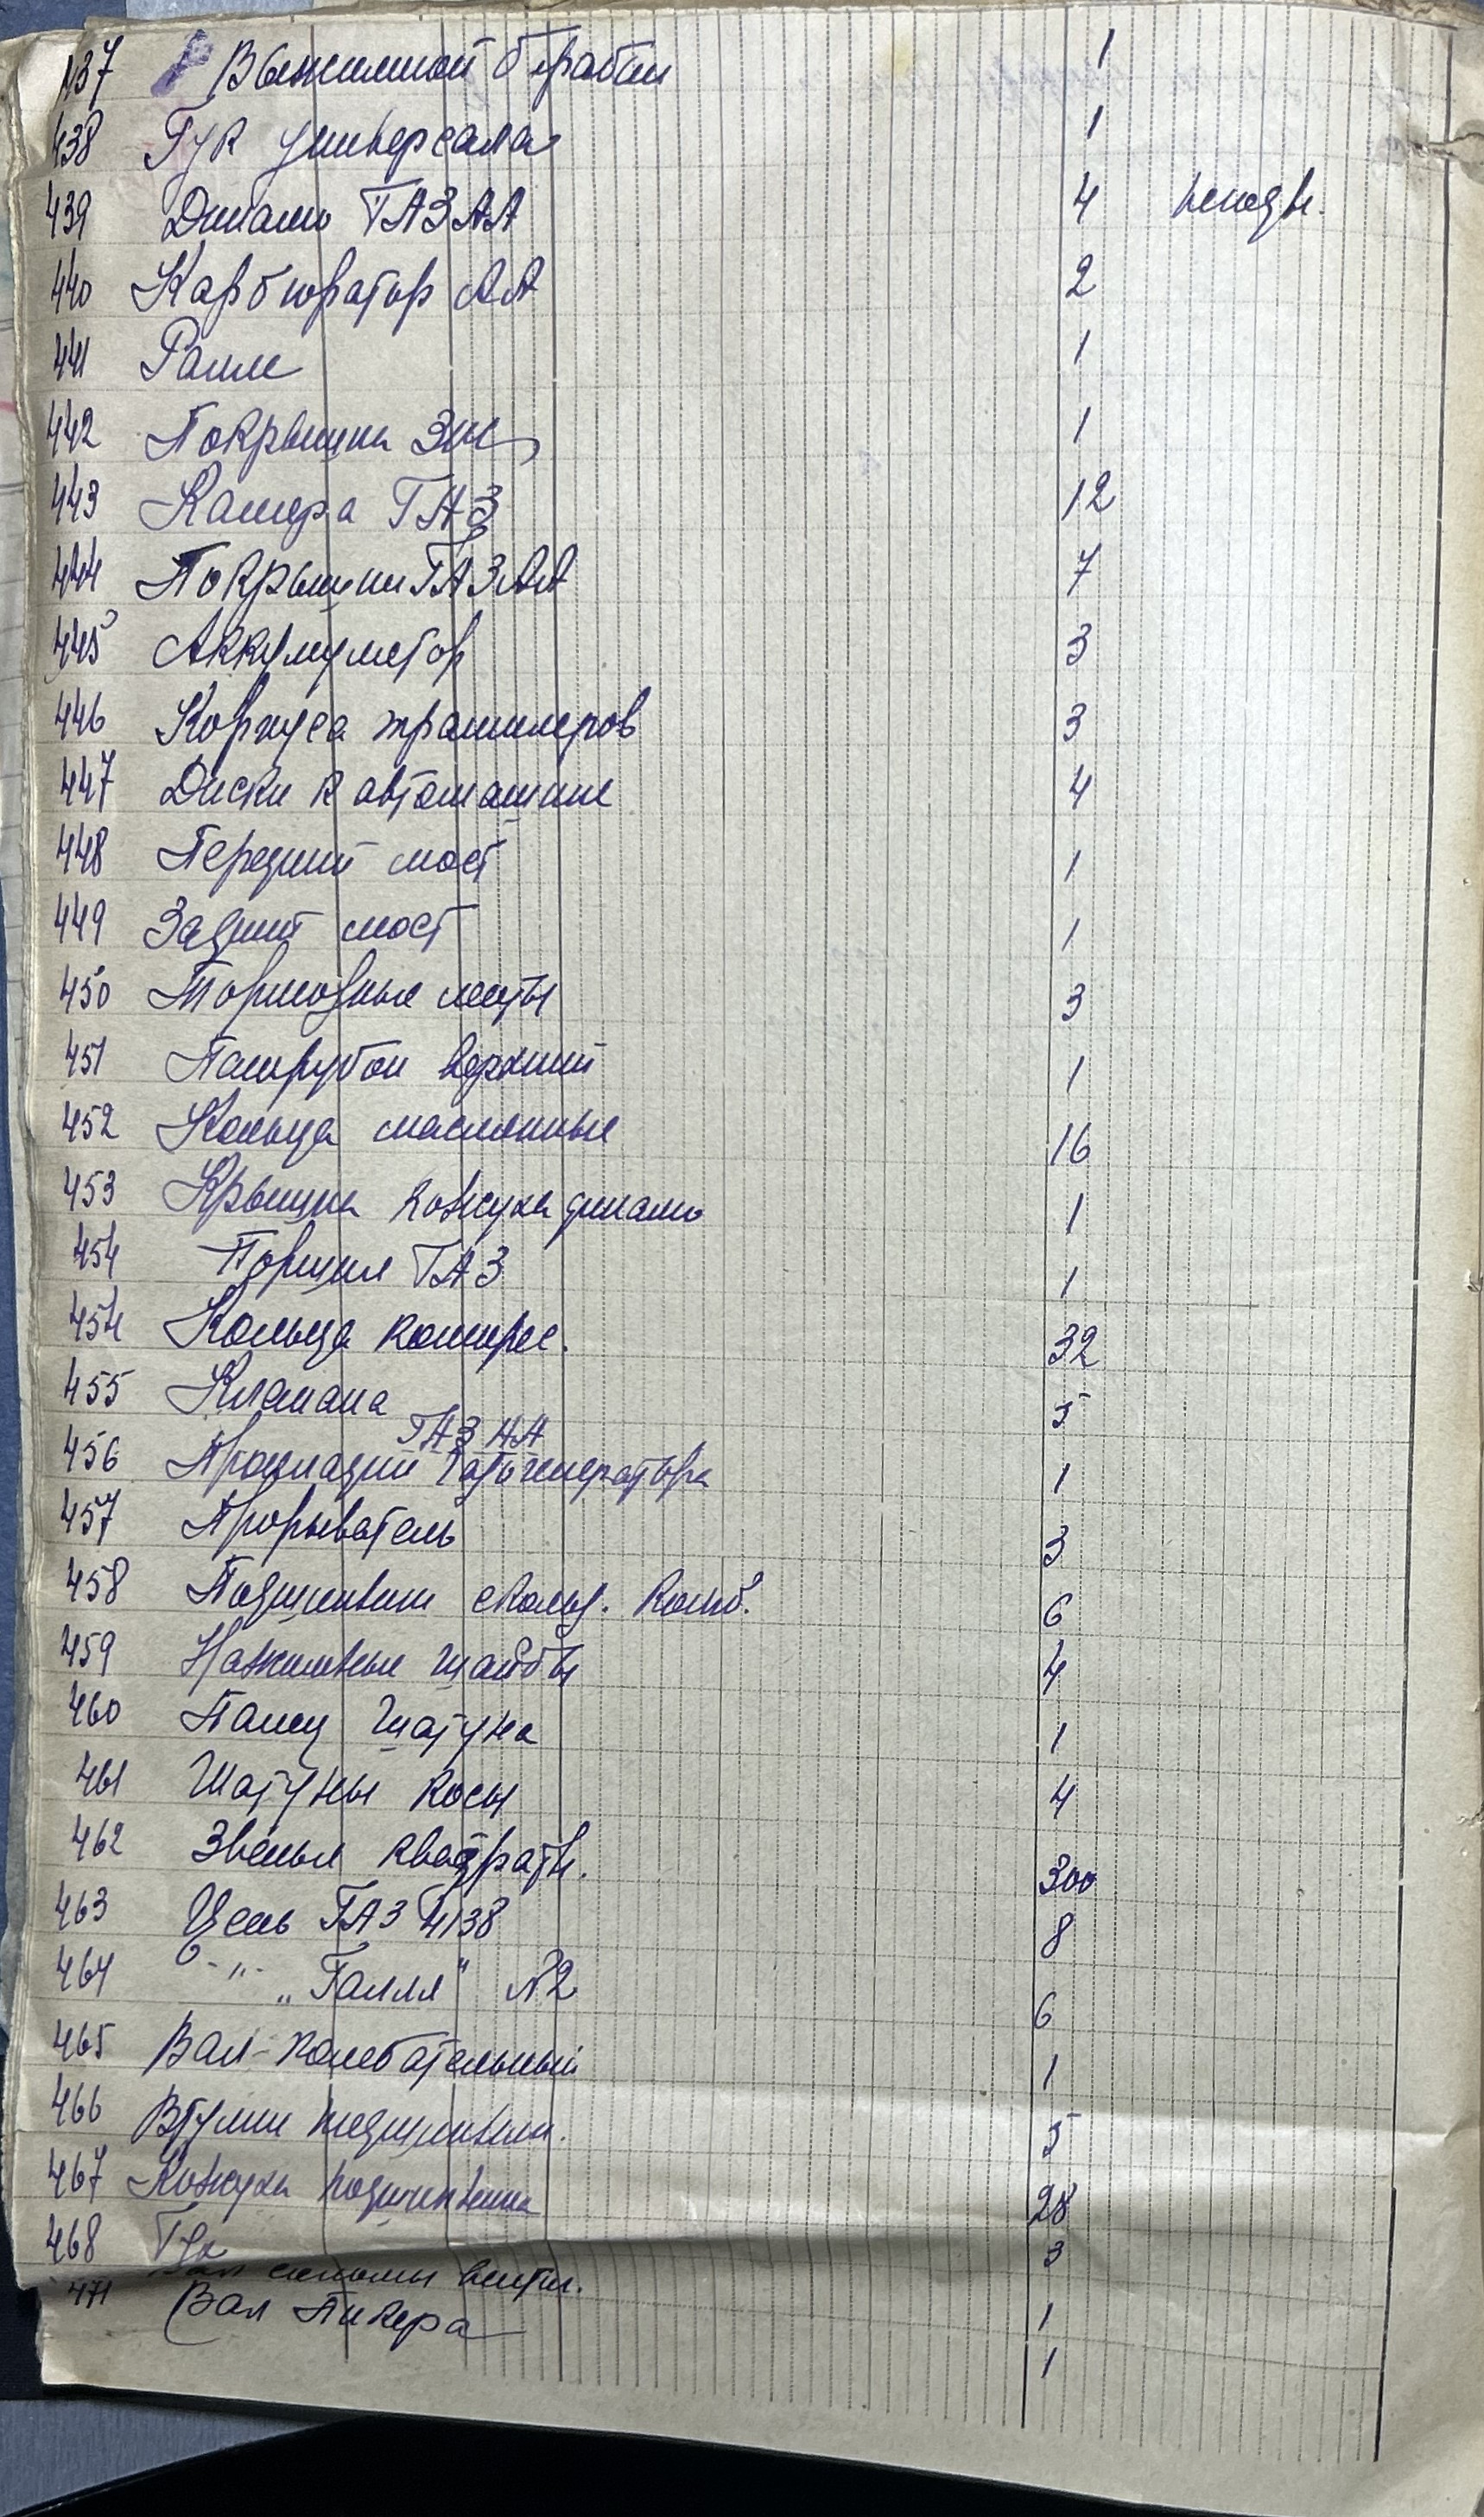 437 Выжимной барабан 1
438 Гук универсала 1
439 Динамо ГАЗ АА 4
440 Карбюратор АА 2
441 1
442 Покрышки Зис 1
443 Камера ГАЗ 12
444 Покрышки ГАЗ АА 7
445 Аккумулятор 3
446 Корпуса 3
447 Диски к автомашине 4
448 Передний мост 1
449 Задний мост 1
450 Тормозные ленты 3
451 верхний 1
452 Кольца маслянные 16
453 Крышка кожуха динамо 1
454 Поршня ГАЗ 1
454 Кольца компрес. 32
455 Клапана 5
ГАЗ АА
456 1
457 Прорыватель 3
458 Подшипники скольз. комб. 6
459 Нажимные шайбы 4
460 Палец шатуна 1
461 Шатуны косы 4
462 Звенья квадратн. 300
463 Цепь ГАЗ 4138 8
464 -"- „Галля" №2 6
465 Вал колебательный 1
466 Втулки подшипник. 5
467 Кожуха подшипника 28
468 Гук 3
соломы вентил. 1
471 Вал Пикера 1